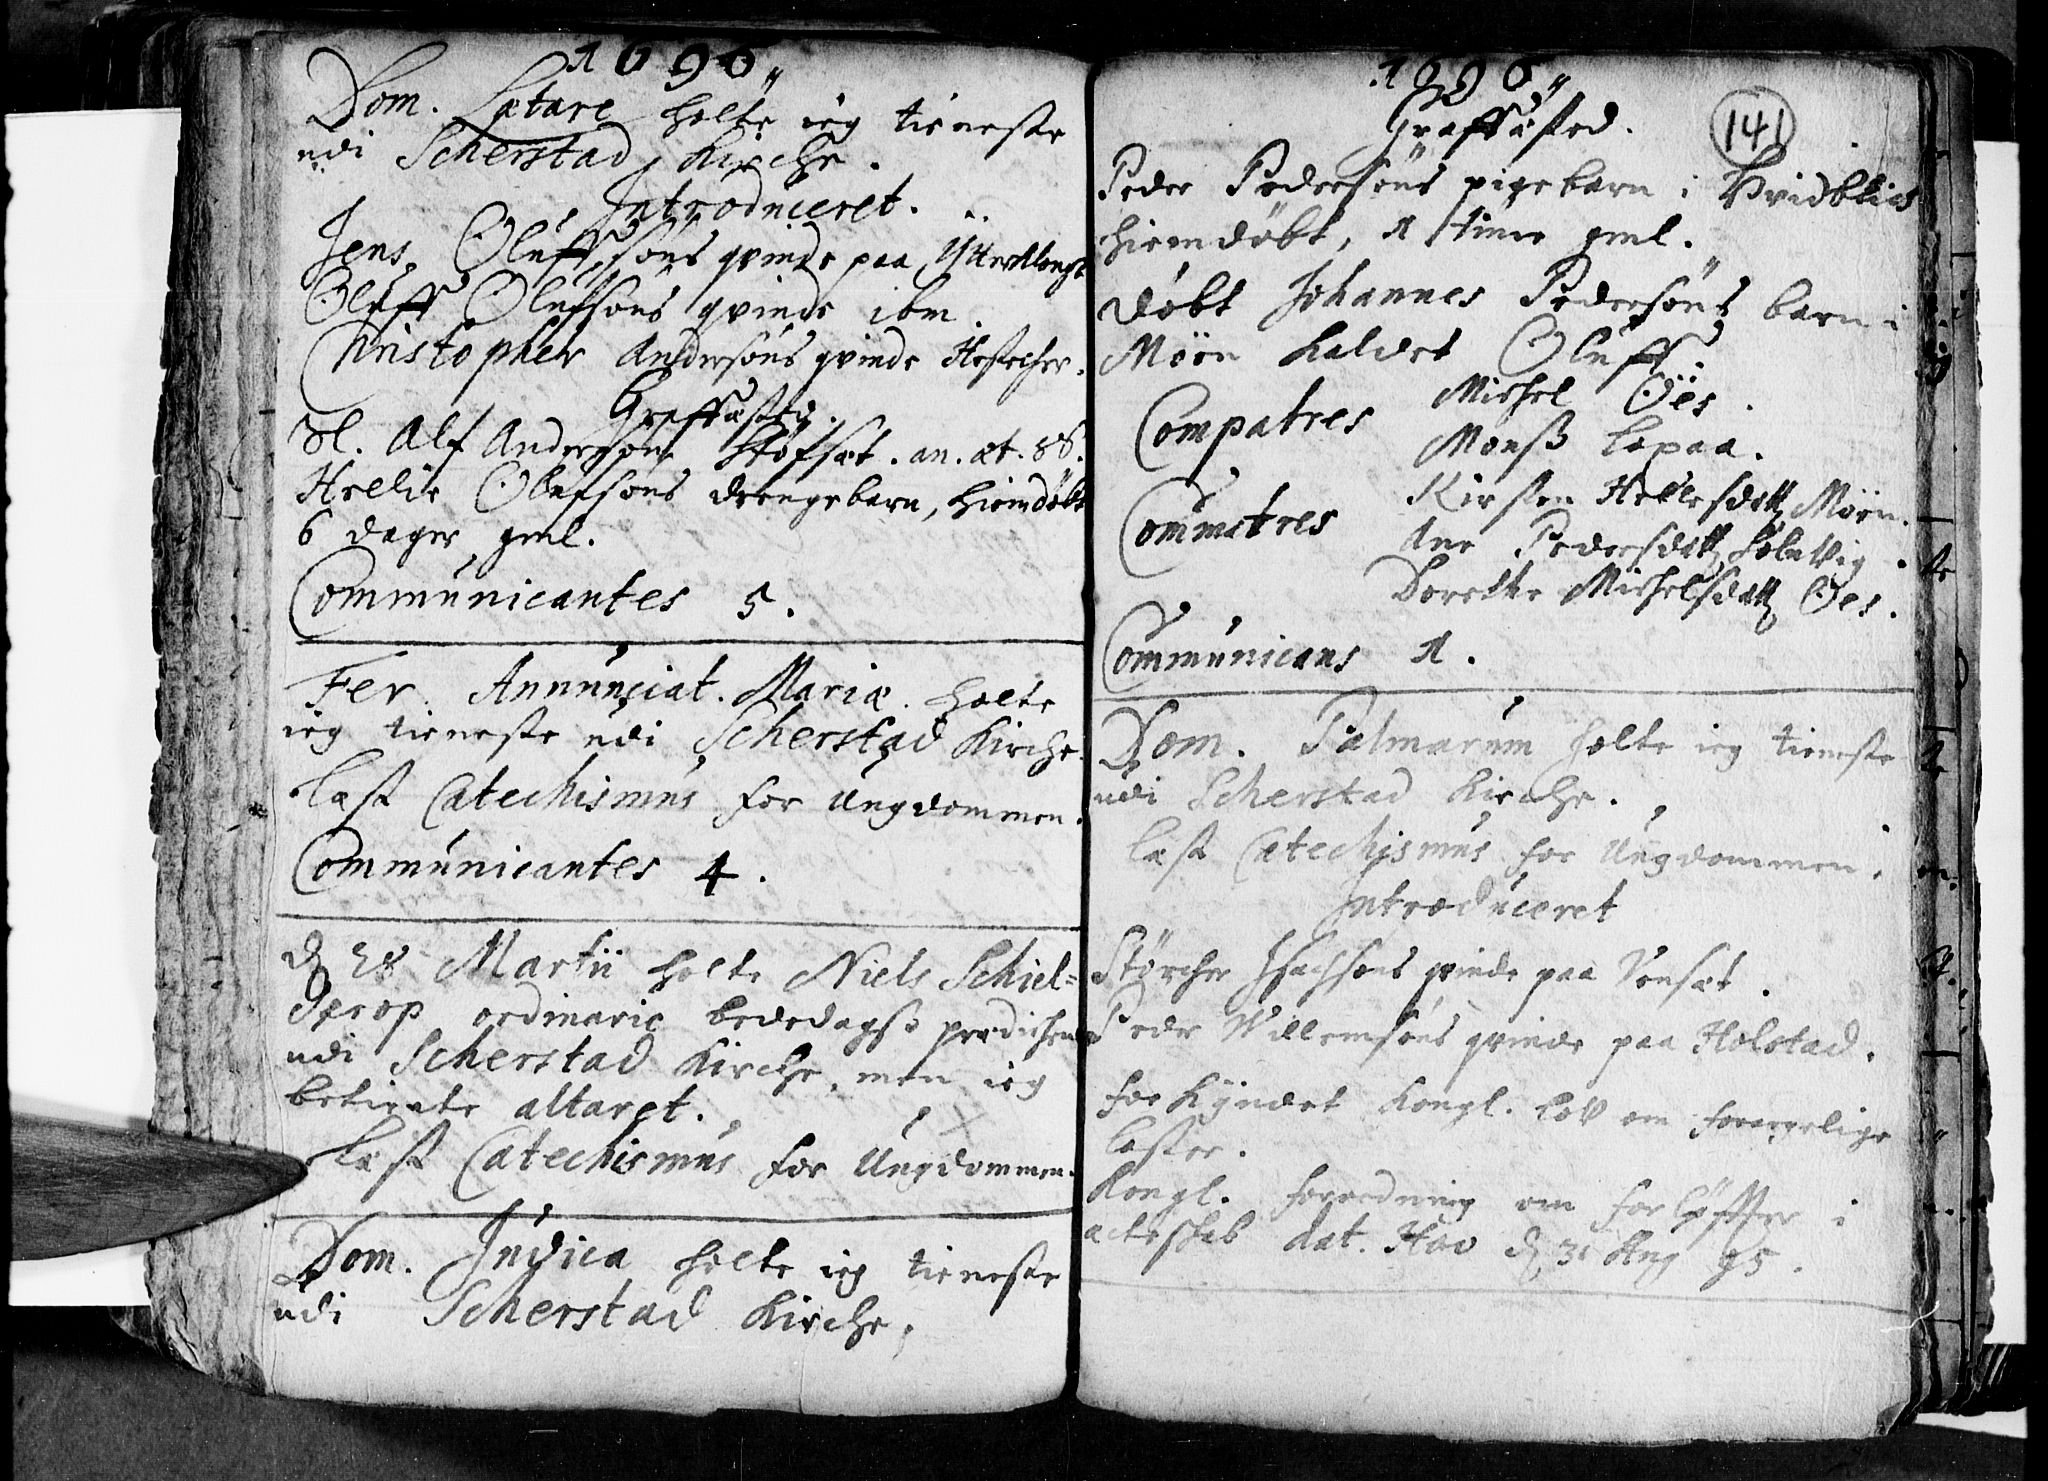 1696
Dom. Lætare holte ieg tieneste
udi Scherstad Kirche.
Introduceret.
Jens Oluffsöns qvinde paa
Oluff Olufsöns qvinde ibm
Christopher Andersöns qvinde
Graffæsted.
Sl. Alf Andersön an. æt. 88.
Hellie Olufsöns drengebarn, hiemdöbt
6 dager gml.
Communicantes 5.
Fer. Annunciat. Mariæ. holte
ieg tieneste udi Scherstad Kirche.
læst Catechismus for Ungdommen.
Communicantes 4.
d 28 Martii holte Niels Schiel=
derop ordinarie bededagss prædichen
udi Scherstad Kirche, men ieg
betiente altaret.
læst Catechismus for Ungdommen.
Dom. Judica holte ieg tieneste
udi Scherstad Kirche.
1696
Graffæsted.
141
Peder Pedersöns pigebarn i
hiemdöbt, 1 time gml.
döbt Johannes Pedersöns barn i
Möen kaldet Oluff.
Compatres Michel Öes.
Monss Lopaa.
Commatres Kirsten Hellesdatt Möen.
Ane Pedersdatt
Dorethe Michelsdatt Öes.
Communicans 1.
Dom. Palmarum holte ieg tieneste
udi Scherstad Kirche.
læst Catechismus for Ungdommen.
Introduceret
Störcher Isachsöns qvinde paa Vensæt.
Peder Willemsöns qvinde paa Holstad.
forkyndet Kongl. lov om forargelige
laster.
Kongl. forordning om forlöffter i
ecteskab dat. Hav d 31 Aug 95.